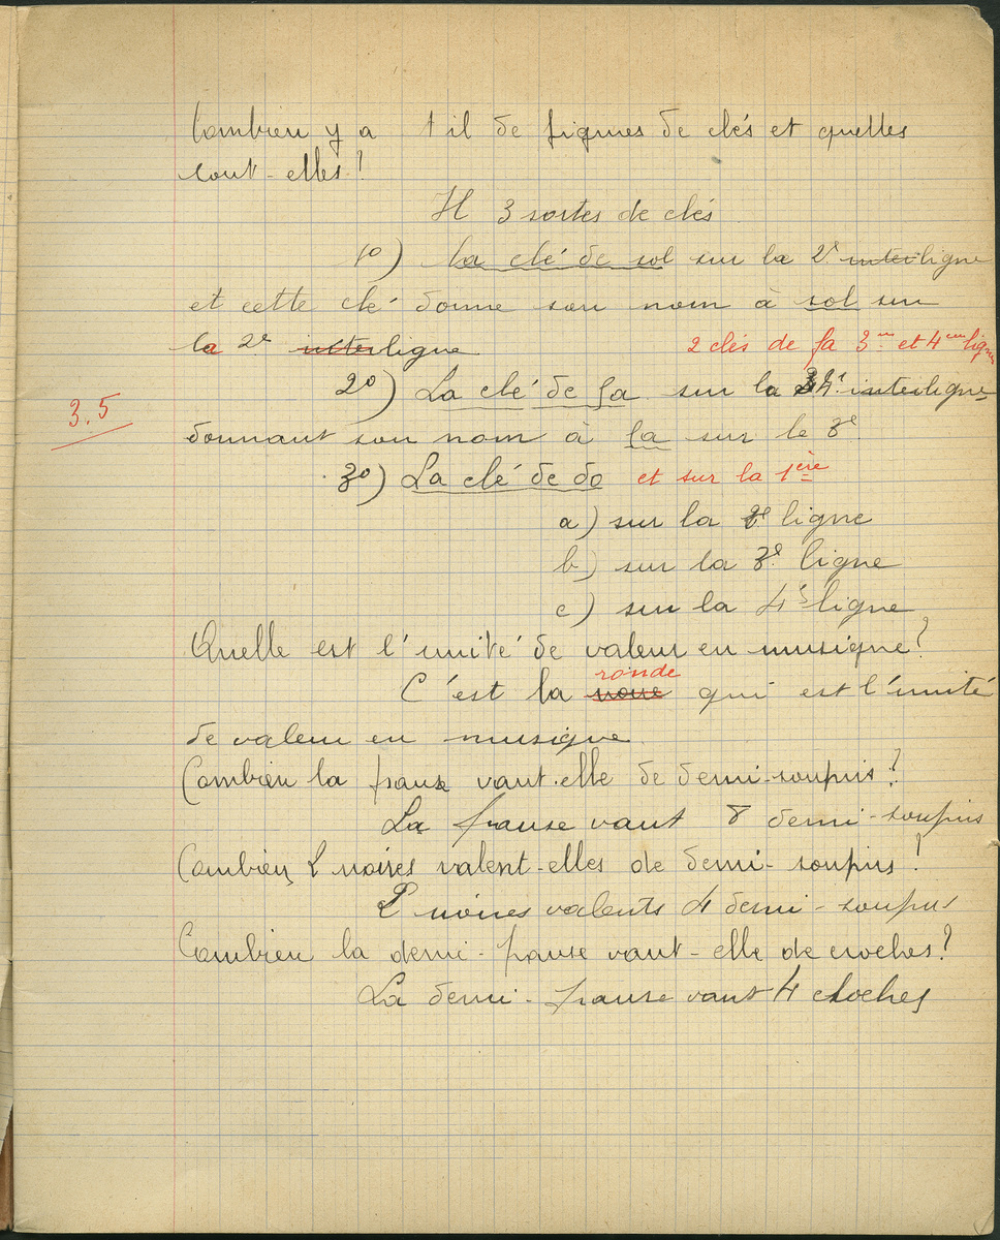 Combien y a t il de figures de clés et quelles
sont-elles?
Il 3 sortes de clés
1º) La clé de sol sur la 2e interligne
et cette clé donne son nom à sol sur
la 2e interligne
2 clés de fa 3me et 4me ligne
2º) La clé de fa sur la 4e interligne
3.5
donnant son nom à fa sur le 3e
3º) La clé de do et sur la 1ère
a) sur la 2e ligne
b) sur la 3e ligne
c) sur la 4e ligne
Quelle est l'unité de valeur en musique?
ronde
C'est la noire qui est l'unité
de valeur en musique
Combien la pause vaut-elle de demi-soupirs?
La pause vaut 8 demi-soupirs
Combien 2 noires valent-elles de demi-soupirs?
2 noires valents 4 demi-soupirs
Combien la demi-pause vaut-elle de croches?
La demi-pause vaut 4 croches